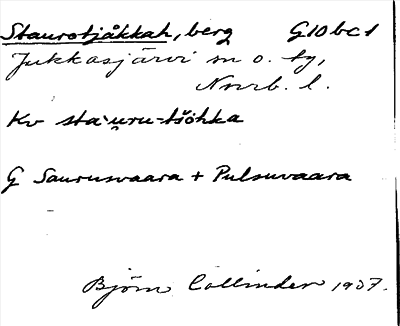 Staurotjåkkah, berg G10bc1
Jukkasjärvi sn o. tg,
Norrb. l.
Kv sta`uru-tšohka
G Saurusvaara + Pulsuvaara
Björn Collinder 1937.